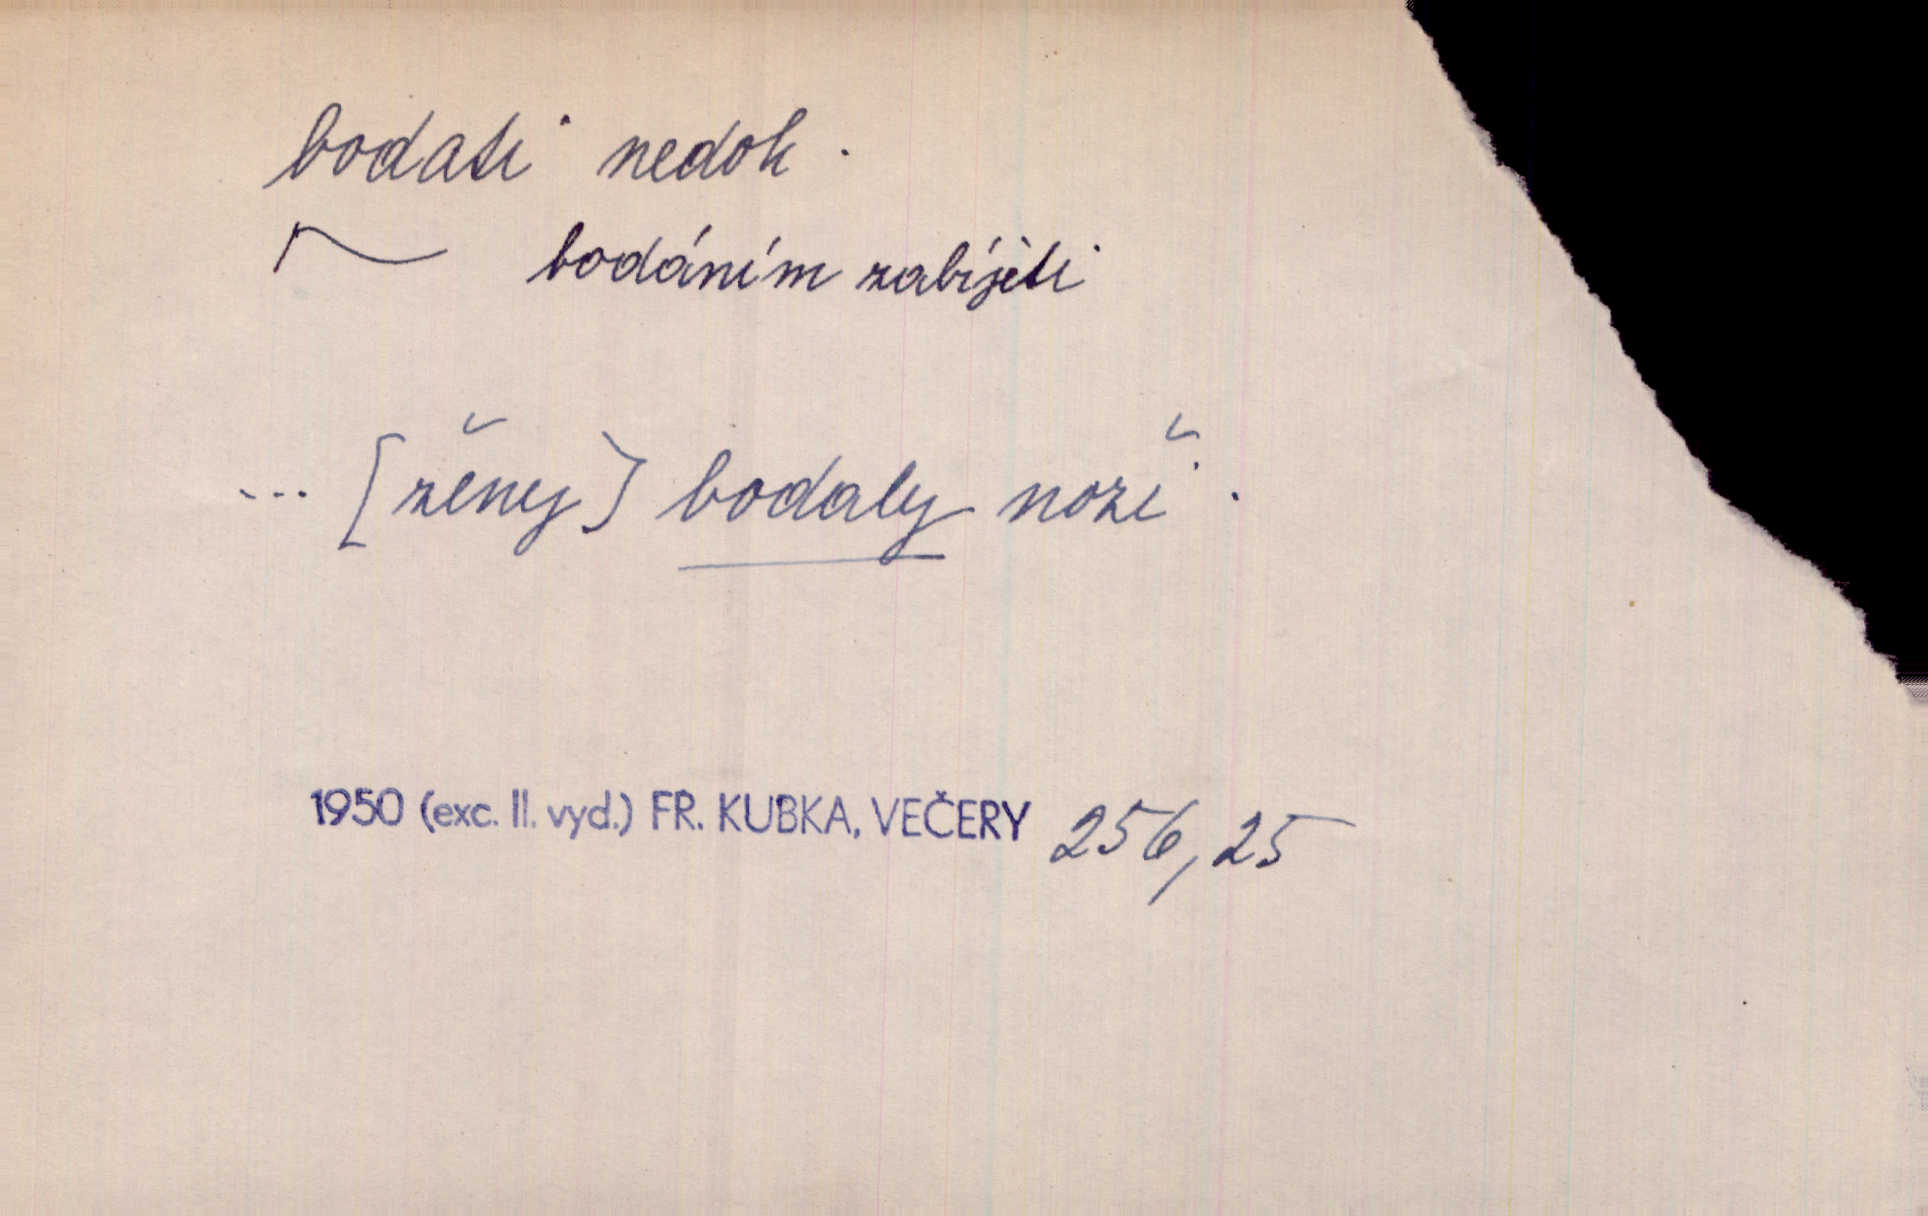 bodati nedok.
bodáním zabíjeti
... [ženy] bodaly noži.
1950 (exc. II. vyd.) FR. KUBKA, VEČERY 256,25